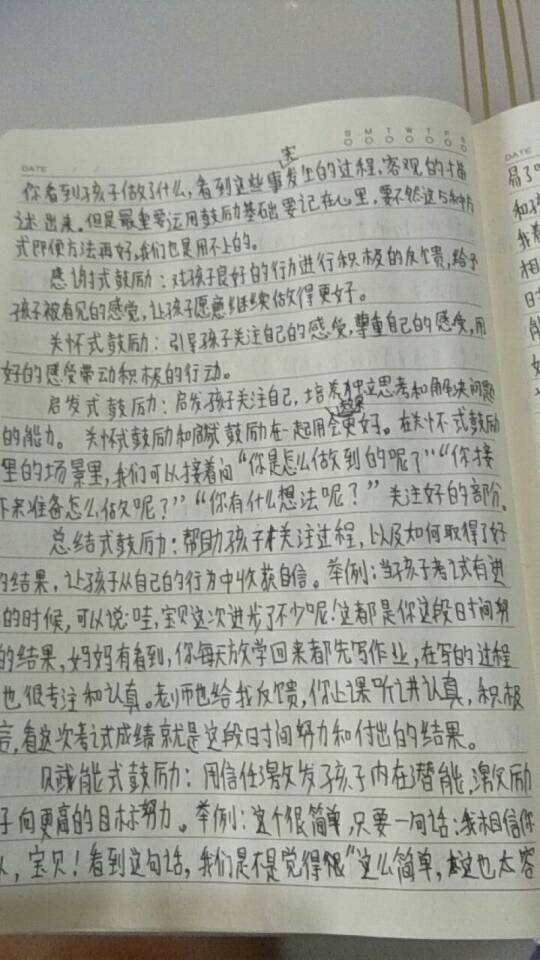 DATE
S M T W T F S
你看到孩子做了什么,看到这些事实发生的过程,客观的描
述出来。但是最重要运用鼓励基础要记在心里,要不然这5种方
式即便方法再好,我们也是用不上的。
感谢式鼓励:对孩子良好的行为进行积极的反馈,给予
孩子被看见的感觉,让孩子愿意继续做得更好。
关怀式鼓励:引导孩子关注自己的感受,尊重自己的感受,用
好的感受带动积极的行动。
启发式鼓励:启发孩子关注自己,培养独立思考和解决问题
的能力。关怀式鼓励和启发式鼓励在一起用效果会更好。在关怀式鼓励
里的场景里,我们可以接着问“你是怎么做到的呢?”“你接
下来准备怎么做呢?”“你有什么想法呢?”关注好的部分。
总结式鼓励:帮助孩子关注过程,以及如何取得了好
的结果,让孩子从自己的行为中收获自信。举例:当孩子考试有进
的时候,可以说:哇,宝贝这次进步了不少呢!这都是你这段日时间努
的结果,妈妈有看到,你每天放学回来都先写作业,在写的过程
也很专注和认真。老师也给我反馈,你上课听讲认真,积极
言,看这次考试成绩就是这段日时间努力和付出的结果。
赋能式鼓励:用信任激发孩子内在潜能,激励
子向更高的目标努力。举例:这个很简单,只要一句话:我相信你
,宝贝!看到这句话,我们是不是觉得很“这么简单,这也太容
DATE
易了
和孩
我
相
日
能